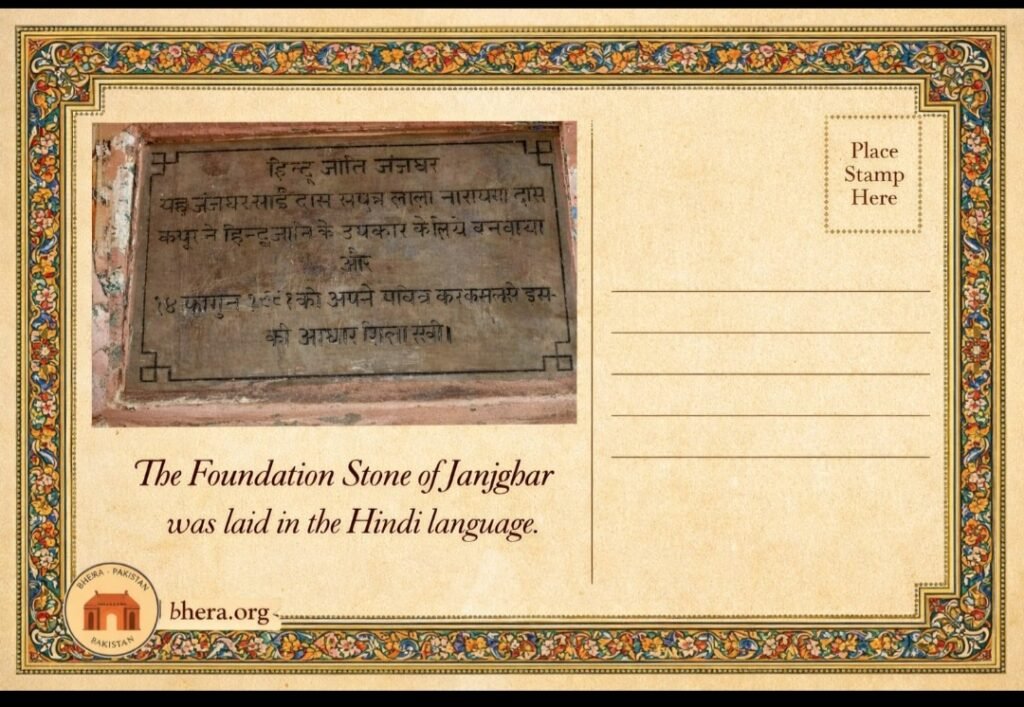 हिन्दू जाति जंजघर
यह जंजघर साईं दास सपुत्र लाला नारायण दास
कपूर ने हिन्दू जाति के उपकार के लिये बनवाया
और
१४ फागुन को अपने पवित्र करकमलसे इस-
की आधार शिला रखी।
The Foundation Stone of Janjghar
was laid in the Hindi language.
Place
Stamp
Here
BHERA - PAKISTAN
PAKISTAN
bhera.org